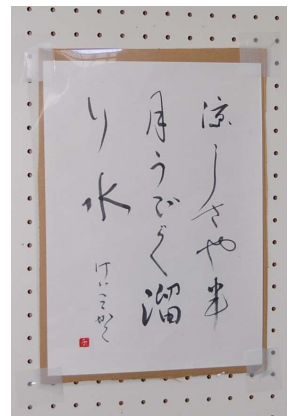 涼しさや半
月うごく溜
り水
けいこかく